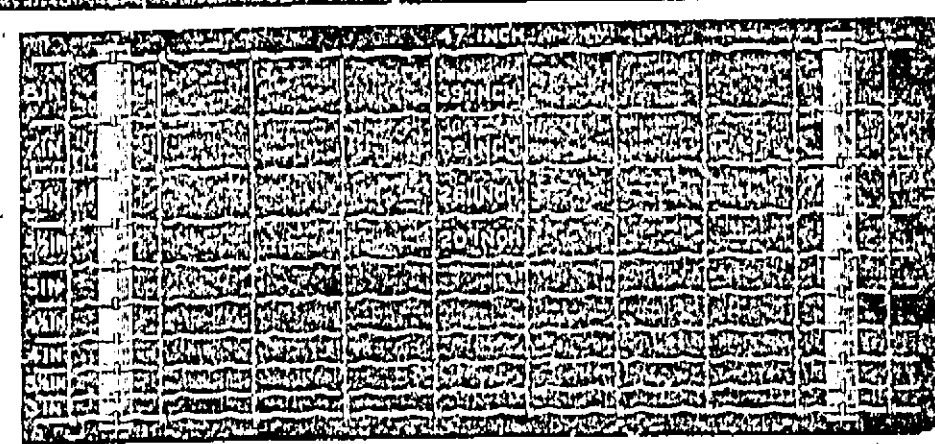 47 INCH
8 IN 39 INCH
7 IN 32 INCH
6 IN 26 INCH
20 INCH
5 IN
4 IN
4 IN
3 IN